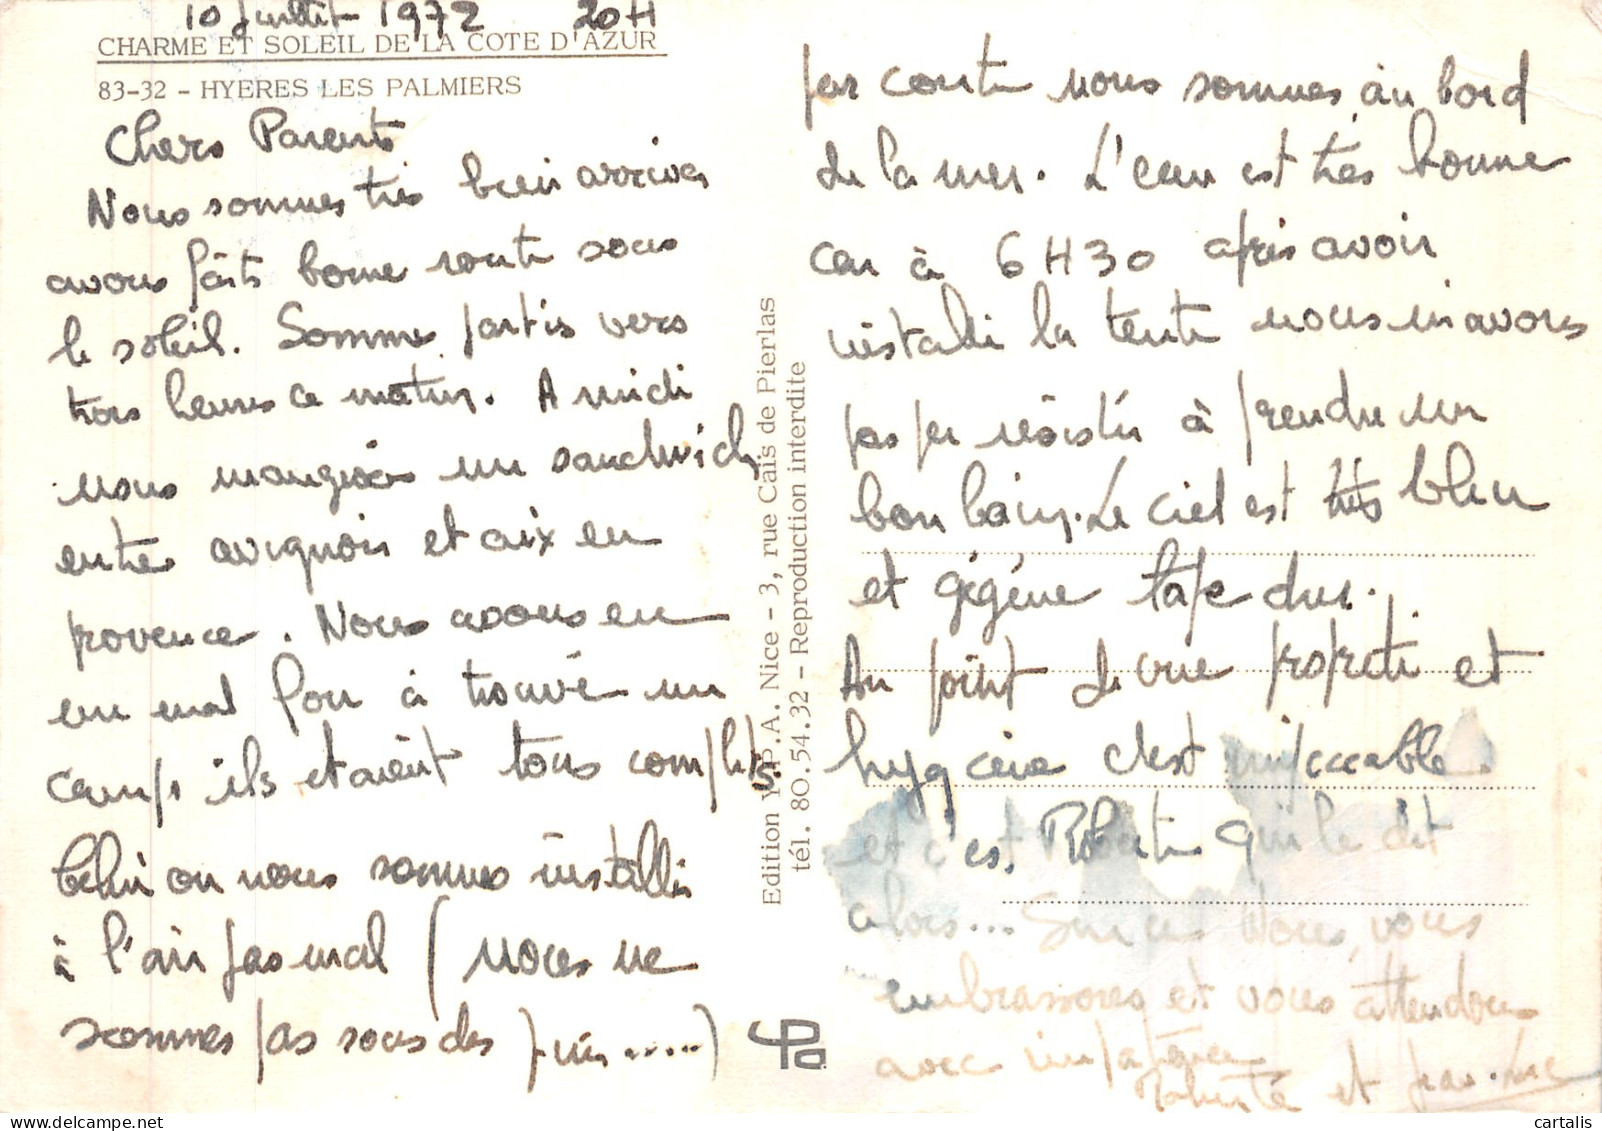 10 juillet 1972 20H
CHARME ET SOLEIL DE LA COTE D'AZUR
83-32 - HYERES LES PALMIERS
Chers Parents
Nous sommes très bien arrivés
avons faits bonne route sous
le soleil. Sommes partis vers
trois heures ce matin. A midi
nous mangions un sandwich
entre avignon et aix en
provence. Nous avons eu
un mal fou à trouvé un
camps ils etaient tous complets
behin on nous sommes installés
à l'air pas mal (nous ne
sommes pas sous des pins.....)
Edition Y.P.A. Nice - 3, rue Caïs de Pierlas
tél. 80.54.32 - Reproduction interdite
par contre nous sommes au bord
de la mer. L'eau est très bonne
car à 6H30 après avoir
installé la tente nous n'avons
pas pu résister à prendre un
bon bain. Le ciel est très bleu
et gégène tape dur.
Au point de vue propreté et
hygiène c'est impeccable
et c'est Robert qui le dit
alors... Sur ce Nous vous
embrassons et vous attendons
avec impatience
et Jean-Luc